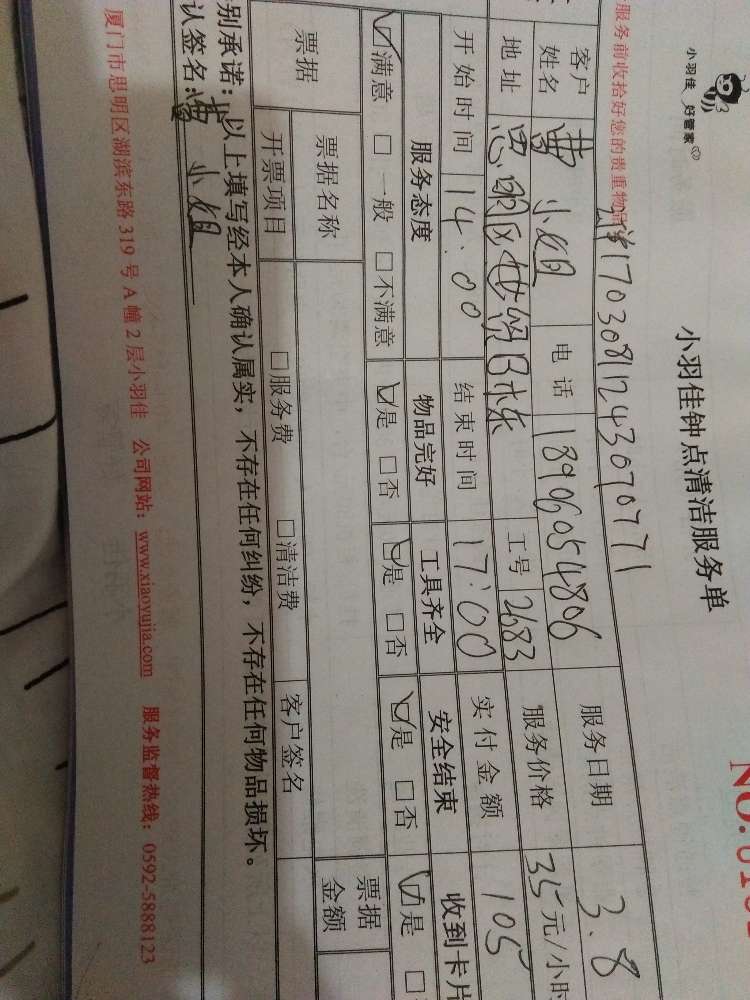 小羽佳 好管家
小羽佳钟点清洁服务单
服务前收拾好您的贵重物品
17030811243070771
客户姓名 曹小姐 电话 18906054806 服务日期 3.8
地址 思明区世贸日东 工号 2683 服务价格 35元/小时
开始时间 14:00 结束时间 17:00 实付金额 105
服务态度 物品完好 工具齐全 安全结束 收到卡片
☑满意 □一般 □不满意 ☑是 □否 ☑是 □否 ☑是 □否 ☑是
票据 票据名称 票据金额
开票项目 □服务费 □清洁费 客户签名
别承诺：以上填写经本人确认属实，不存在任何纠纷，不存在任何物品损坏。
认签名：曹小姐
厦门市思明区湖滨东路319号A幢2层小羽佳 公司网站：www.xiaoyujia.com 服务监督热线：0592-5888123